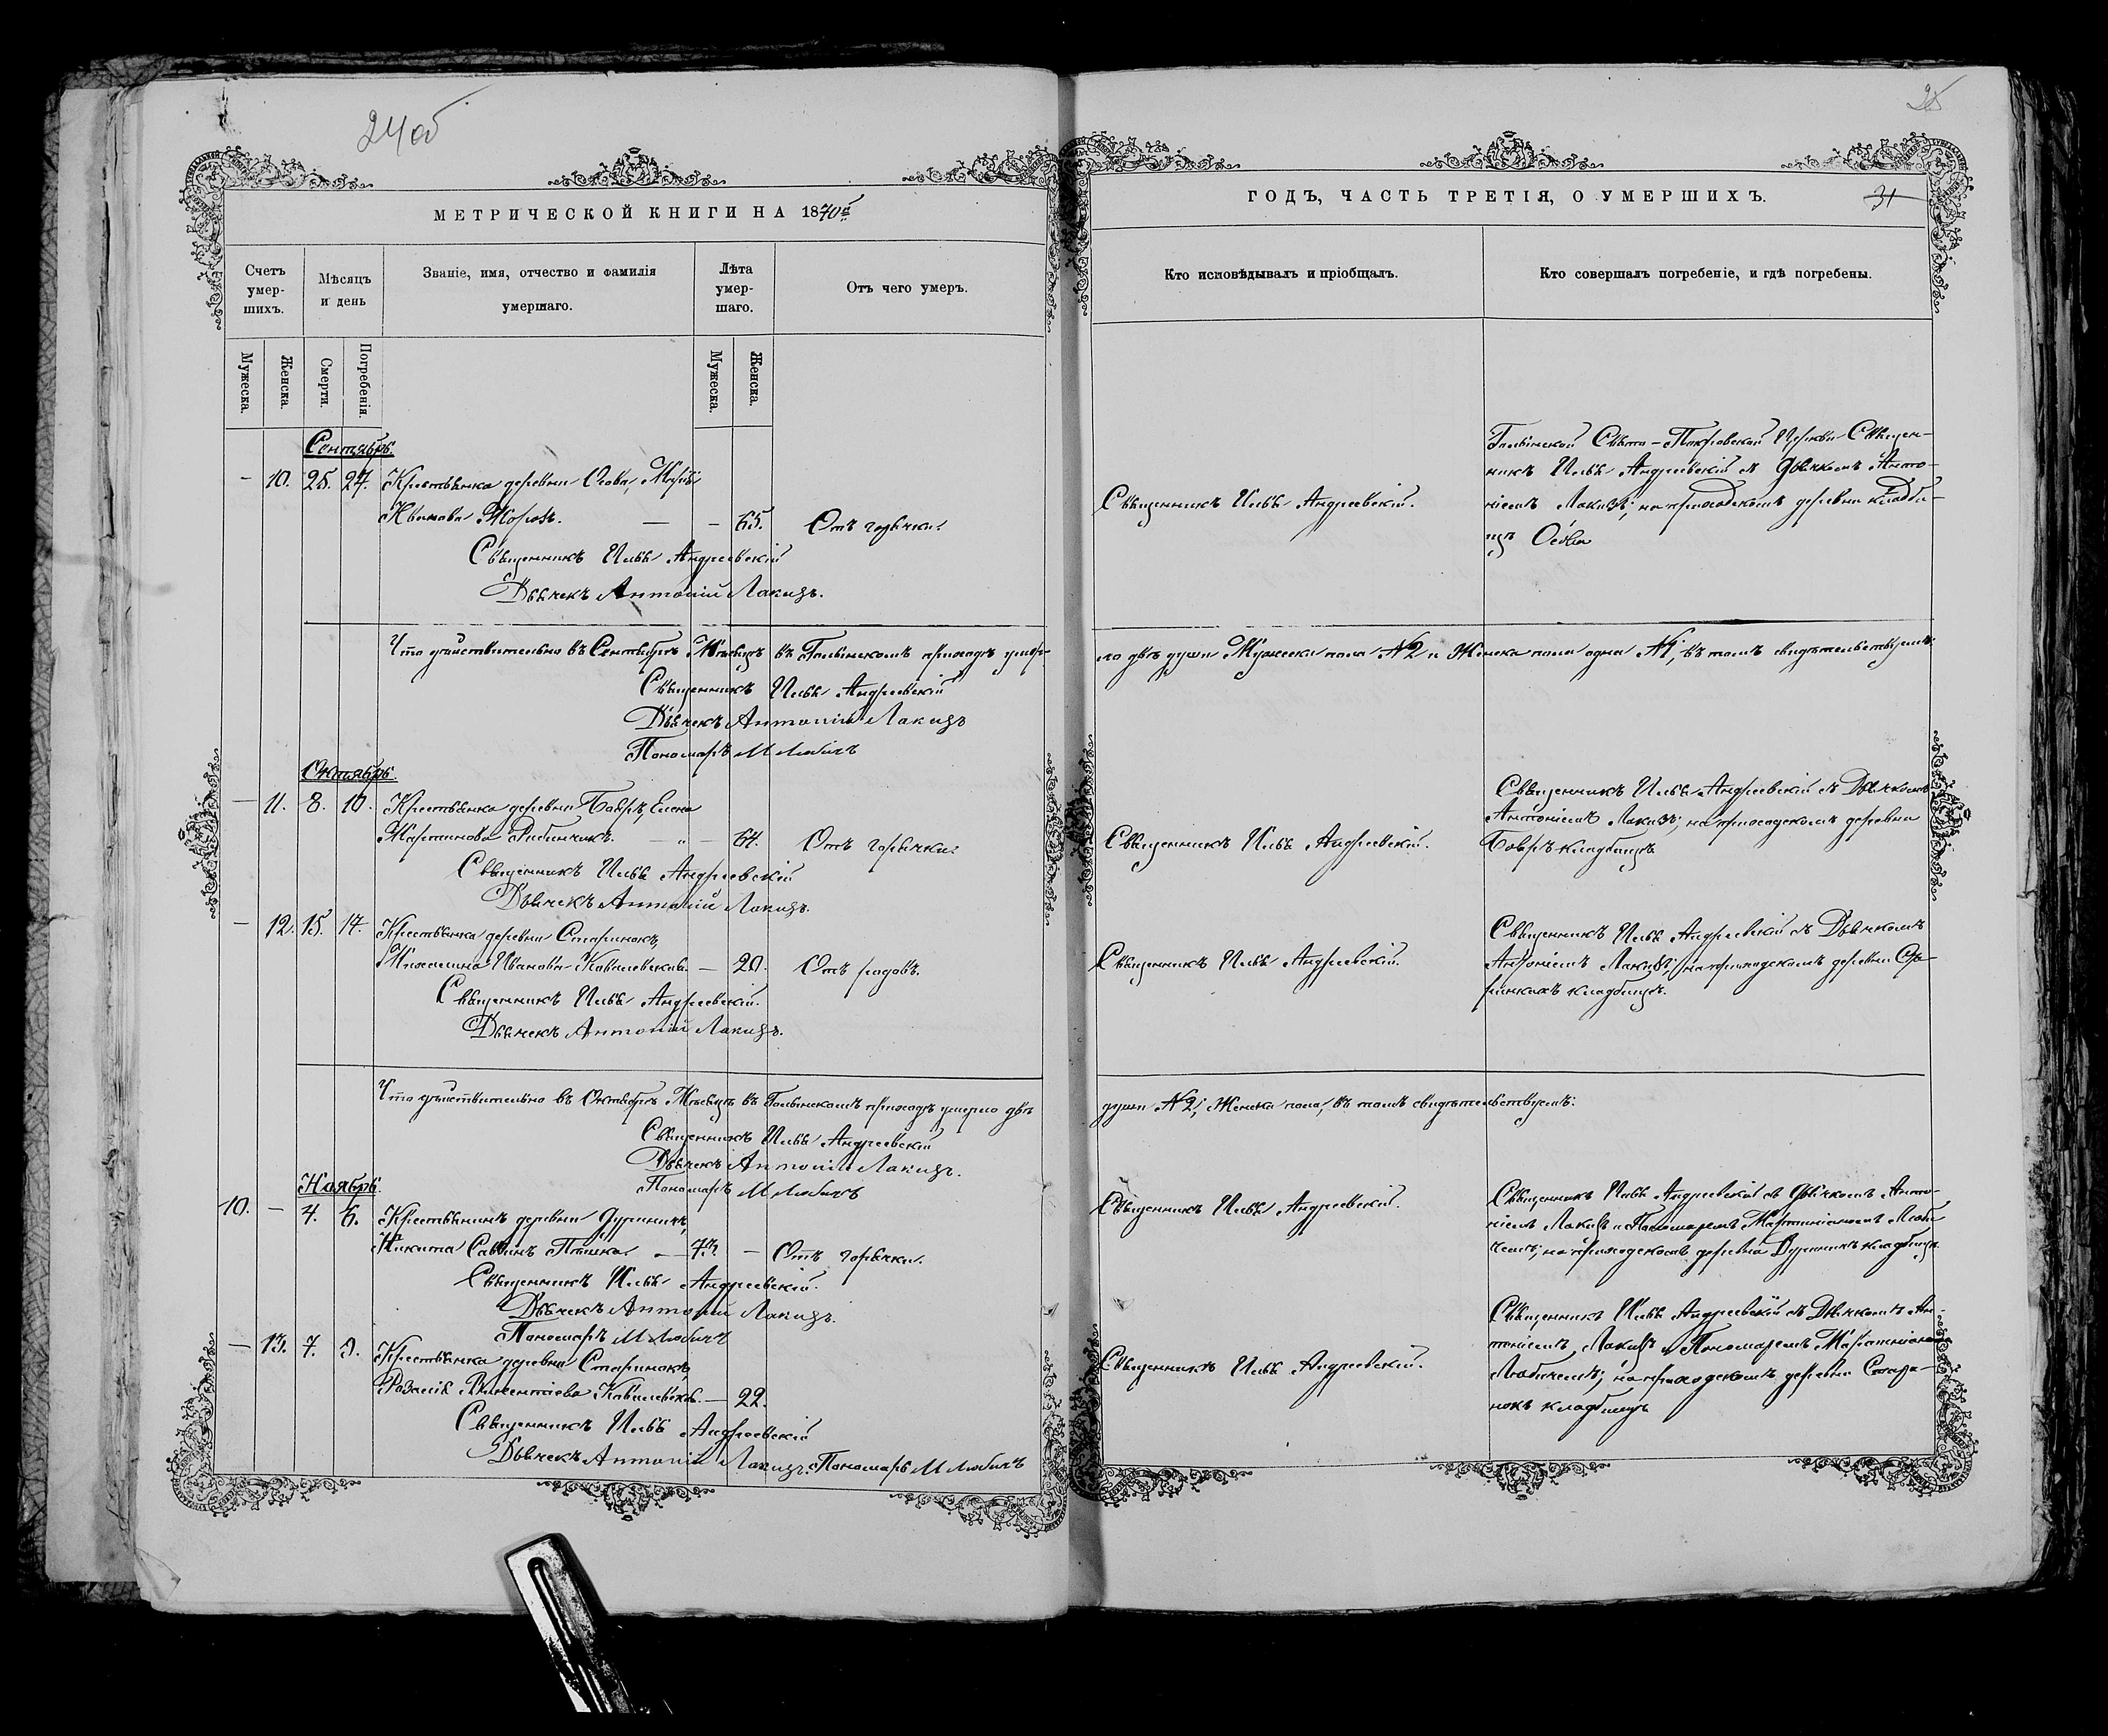 24об
МЕТРИЧЕСКОЙ КНИГИ НА 1870й
Счетъ умер-шихъ.
Мѣсяцъ и день
Званіе, имя, отчество и фамилія умершаго.
Лѣта умер-шаго.
Отъ чего умеръ.
Мужеска.
Женска.
Смерти.
Погребенія.
Мужеска.
Женска.
Сентябрь.
— 10. 25. 27. Крестьянка деревни Осова,
65. Отъ горячки.
Священникъ Илья Андреевскій
Дьячекъ Антоній Лакизъ.
Что дѣйствительно въ Сентябрѣ Мѣсяцѣ въ приходѣ умер-
Священникъ Илья Андреевскій
Дьячекъ Антоній Лакизъ
Пономарь М Любичъ
Октябрь.
— 11. 8. 10. Крестьянка деревни Бобръ, Елена
Мартинова — „ — 64. Отъ горячки.
Священникъ Илья Андреевскій
Дьячекъ Антоній Лакизъ.
— 12. 15. 17. Крестьянка деревни Старинокъ,
Иванова — 20. Отъ родовъ.
Священникъ Илья Андреевскій.
Дьячекъ Антоній Лакизъ.
Что дѣйствительно въ Октябрѣ Мѣсяцѣ въ приходѣ умерло двѣ
Священникъ Илья Андреевскій
Дьячекъ Антоній Лакизъ.
Пономарь М Любичъ
Ноябрь.
10. — 4. 6. Крестьянинъ деревни
Никита Саввинъ Пташка. — 73. — Отъ горячки.
Священникъ Илья Андреевскій.
Дьячекъ Антоній Лакизъ.
Пономарь М Любичъ
— 13. 7. 9. Крестьянка деревни Старинокъ,
Розалія Викентіева — 22.
Священникъ Илья Андреевскій
Дьячекъ Антоній Лакизъ. Пономарь М Любичъ
25
ГОДЪ, ЧАСТЬ ТРЕТІЯ, О УМЕРШИХЪ.
31
Кто исповѣдывалъ и пріобщалъ.
Кто совершалъ погребеніе, и гдѣ погребены.
Свято-Покровской Церкви Священ-
никъ Илья Андреевскій съ Дьячкомъ Анто-
Священникъ Илья Андреевскій.
ніемъ Лакизъ; на приходскомъ деревни кладби-
щѣ Осова
ло двѣ души Мужеска пола №2 и Женска пола одна №1, въ томъ свидѣтельствуемъ:
Священникъ Илья Андреевскій съ Дьячкомъ
Антоніемъ Лакизъ; на приходскомъ деревни
Священникъ Илья Андреевскій.
Бобръ кладбищѣ
Священникъ Илья Андреевскій съ Дьячкомъ
Священникъ Илья Андреевскій.
Антоніемъ Лакизъ; на приходскомъ деревни Ста-
ринкахъ кладбищѣ.
души №2; Женска пола, въ томъ свидѣтельствуемъ:
Священникъ Илья Андреевскій съ Дьячкомъ Анто-
Священникъ Илья Андреевскій.
ніемъ Лакизъ и Пономаремъ Мартиніаномъ Люби-
чемъ; на приходскомъ деревни кладбищѣ.
Священникъ Илья Андреевскій съ Дьячкомъ Ан-
тоніемъ Лакизъ и Пономаремъ Мартиніаномъ
Священникъ Илья Андреевскій.
Любичемъ; на приходскомъ деревни Стари-
нокъ кладбищѣ